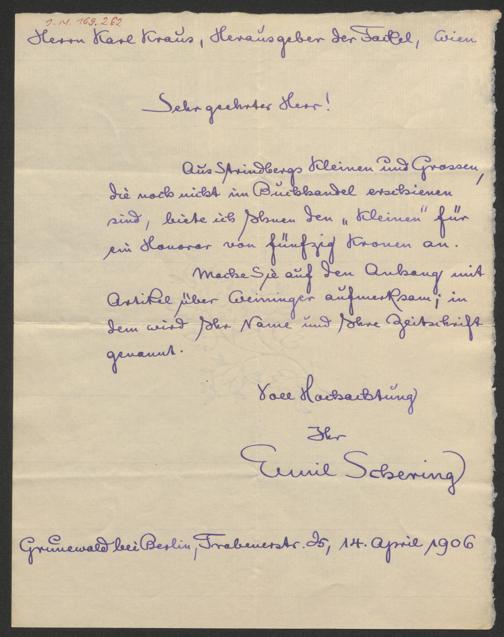 I.N. 169.262
Herrn Karl Kraus, Herausgeber der Fackel, Wien
Sehr geehrter Herr!
Aus Strindbergs Kleinen und Grossen,
die noch nicht im Buchhandel erschienen
sind, biete ich Ihnen den „Kleinen“ für
ein Honorar von fünfzig Kronen an.
Mache Sie auf den Anhang mit
Artikel über Weininger aufmerksam; in
dem wird Ihr Name und Ihre Zeitschrift
genannt.
Voll Hochachtung
Ihr
Emil Schering
Grunewald bei Berlin, Trabenerstr. 14. April 1906